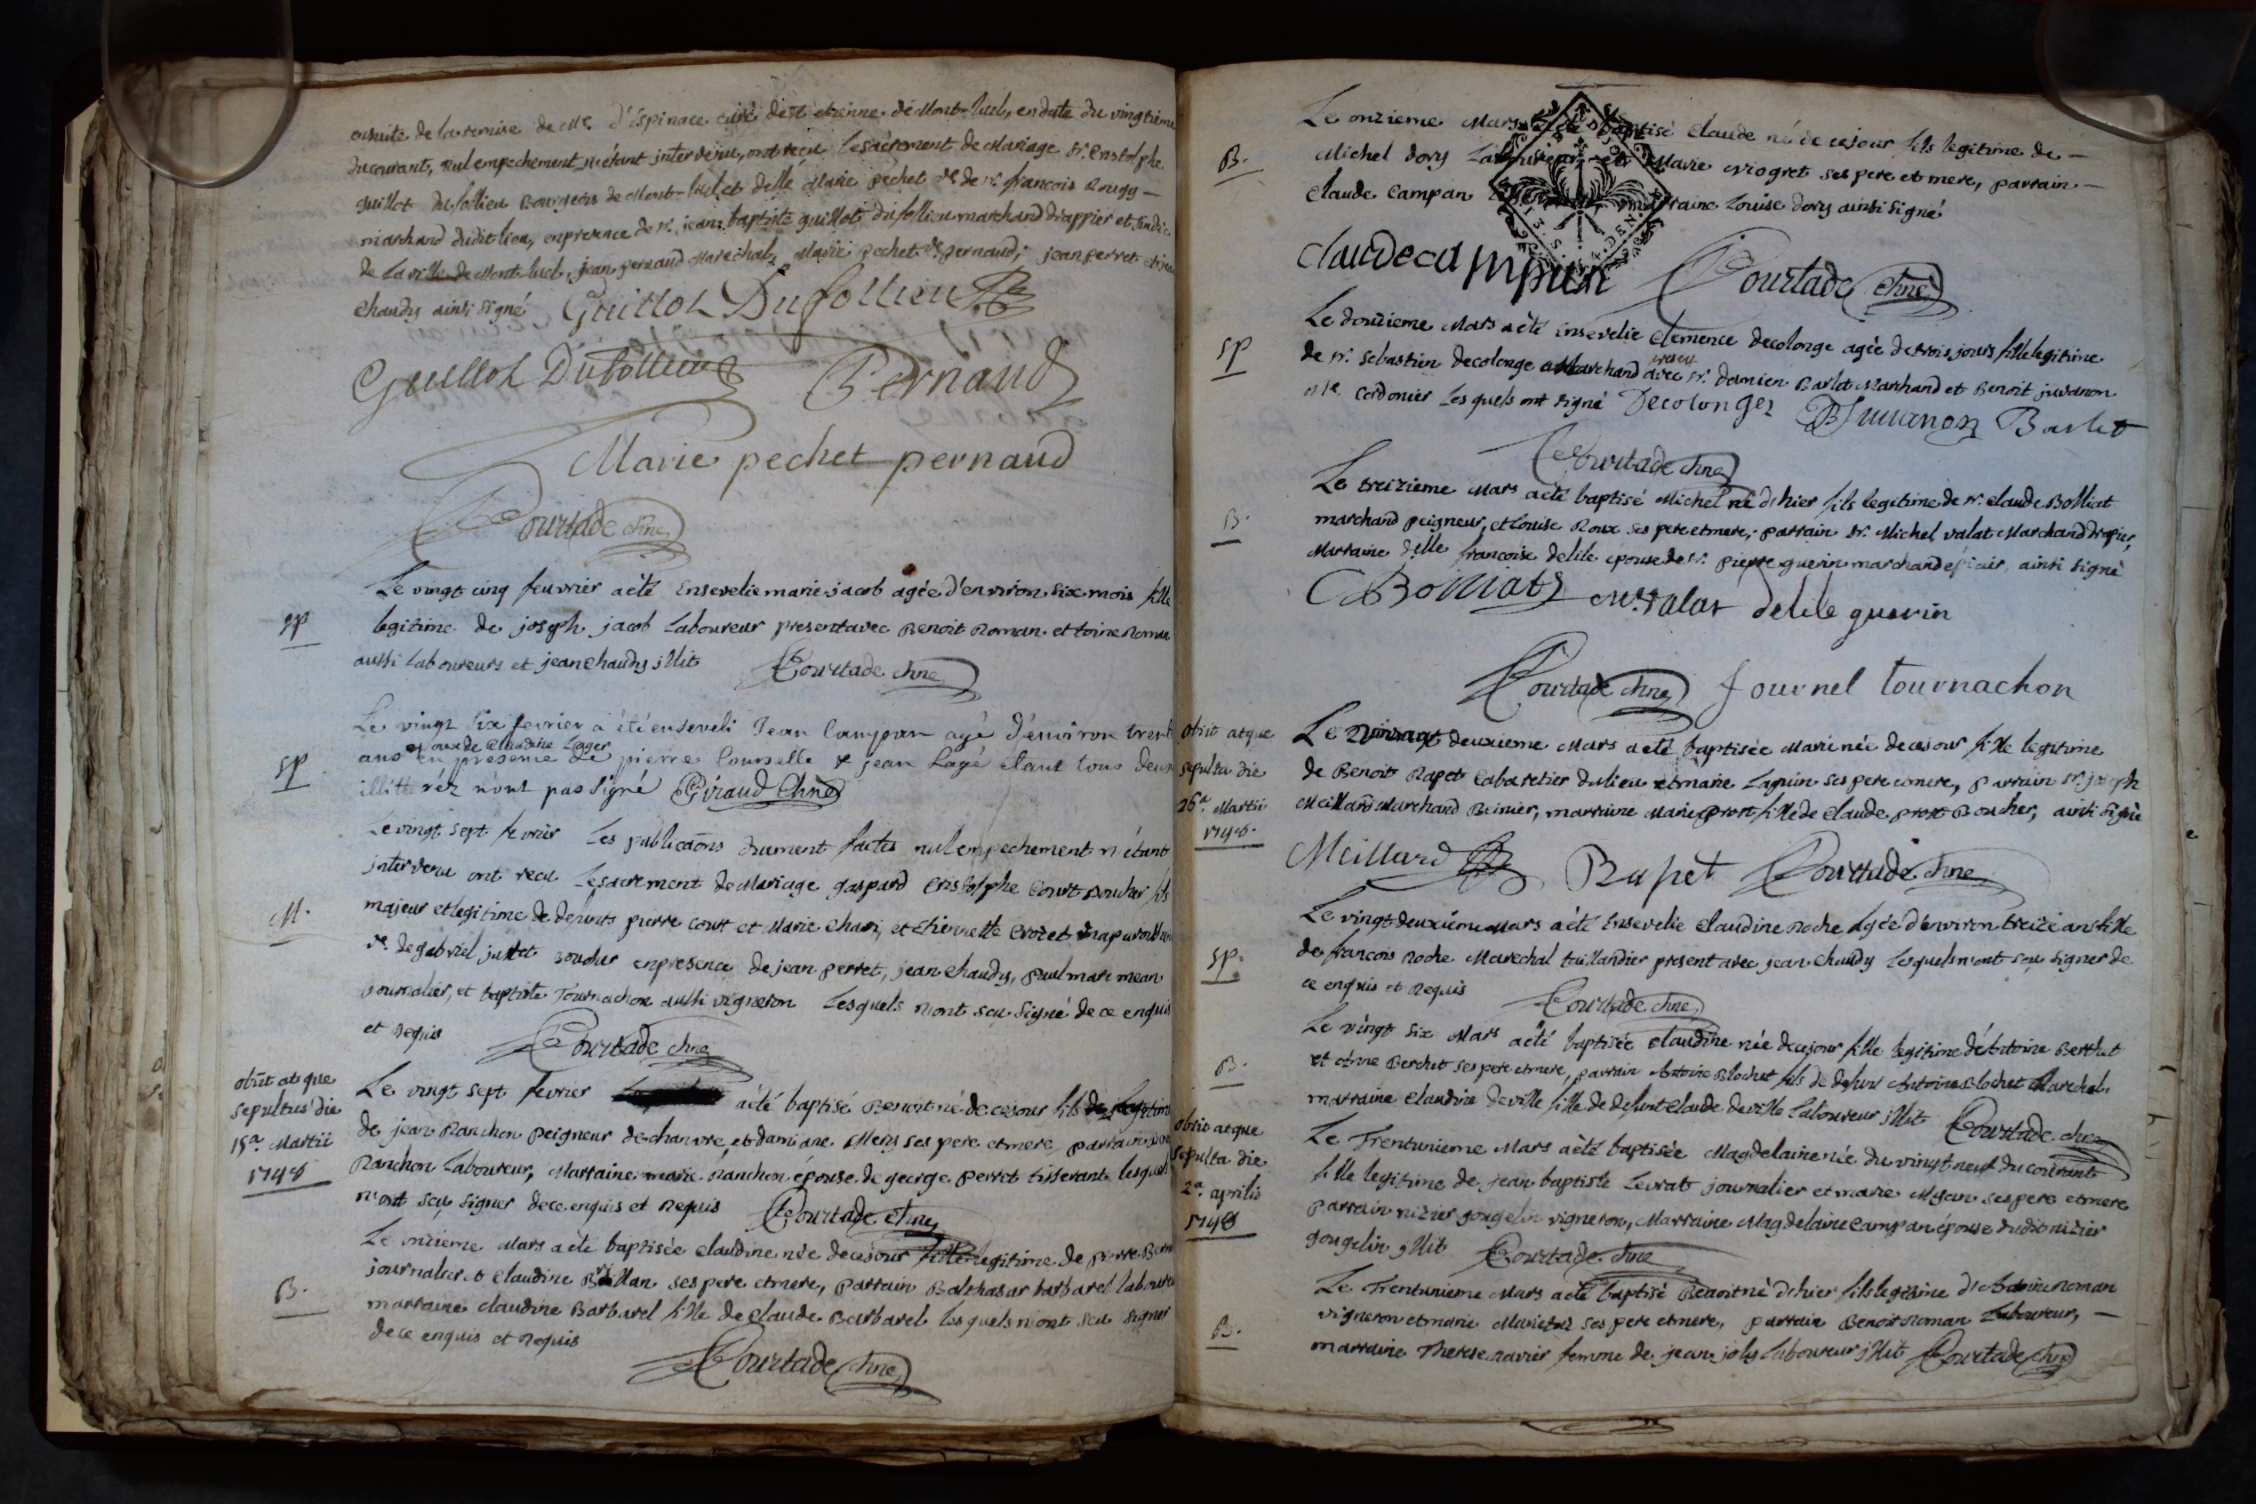 ensuite de la remise de Mr. D'Espinace curé de st etienne de Mont-luel, en date du vingtieme
du courant, nul empechement n'etant intervenu, ont recu le sacrement de Mariage sr. Cristolphe
guillot dufollieu Bourgeois de Mont-luel et delle Marie pechet ve. de sr. francois Rougy —
marchand dudit lieu, en presence de sr. jean baptiste guillot dufollieu marchand drappier et sindic
de la ville de Mont-luel, jean pernaud Marechal, Marie pechet pernaud, jean perret et jean
chaudy ainsi signé Guillot Dufollieu
Guillot Dufollieu Pernaud
Marie pechet pernaud
Courtade chne
sp
Le vingt cinq feuvrier a été Ensevelie marie jacob agée d'environ six mois fille
legitime de joseph jacob Laboureur present avec Benoit Roman et toine Roman
aussi Laboureurs et jean chaudy illit Courtade chne
sp
Le vingt six fevrier a été enseveli Jean Campan agé d'environ trente
ans epoux de Claudine Lager
en presence de pierre Courselle & jean Lagé etant tous deux
illittéréz n'ont pas signé Giraud Chne
M.
Le vingt sept fevrier Les publicaons duement faites nul empechement n'étant
intervenu ont recu Le sacrement de Mariage gaspard Cristolphe Court Boucher fils
majeur et legitime de defunts pierre Court et Marie et Etiennette Crozet
ve. de gabriel boucher en presence de jean perret, jean chaudy, paul marc mean
journalier, et baptiste Tournachon aussi vigneron Lesquels n'ont scu signé de ce enquis
et Requis Courtade chne
obiit atque
sepultus die
15a. Martii
1748
Le vingt sept fevrier a été baptisé Benoit né de ce jour fils legitime
de jean Ranchon peigneur de chanvre, et damiane Mery ses pere et mere parrain
Ranchon Laboureur, Marraine marie Ranchon épouse de george perret tisserant lesquels
n'ont scu signer de ce enquis et Requis Courtade chne
B.
Le onzieme Mars a été baptisée claudine née de ce jour fille legitime de pierre
journalier et Claudine Brillan ses pere et mere, parrain Balthasar barbarel laboureur
marraine claudine Barbarel fille de claude Barbarel lesquels n'ont scu signer
de ce enquis et Requis
Courtade chne
B.
Le onzieme Mars a été baptisé Claude né de ce jour fils legitime de —
Michel dory Laboureur et Marie Miogret ses pere et mere, parrain —
Claude Campan marraine Louise dory ainsi signé
claude campan Courtade chne
sp
Le douzieme Mars a été ensevelie Clemence decolonge agée de trois jours fille legitime
de sr. sebastien decolonge Marchand avec sr. damien Barlet Marchand et Benoit juvanon
Me. Cordonier Lesquels ont signé Decolonges BJuvanon Barlet
Courtade chne
B.
Le treizieme Mars a été baptisé Michel né d'hier fils legitime de sr. claude Bolliat
marchand peigneur, et Louise Roux ses pere et mere, parrain sr. Michel valat Marchand drapier,
Marraine delle francoise delile epouse de sr. pierre guerin marchand epicier, ainsi signé
CBolliat Mel valat delile guerin
Courtade chne Journel tournachon
obiit atque
sepulta die
26a. Martii
1748.
Le deuxieme Mars a été baptisée Marie née de ce jour fille legitime
de Benoit Rapet Cabaretier du lieu et marie Laguin ses pere et mere, parrain sr. joseph
Meillard Marchand Beinier, marraine Marie prost fille de claude prost Boucher, ainsi signé
Meillard Rapet Courtade chne
sp.
Le vingt deuxième Mars a été Ensevelie Claudine Roche agée d'environ treize ans fille
de francois Roche Marechal taillandier present avec jean chaudy Lesquels n'ont scu signer de
ce enquis et Requis Courtade chne
B.
Le vingt six Mars a été baptisée Claudine née de ce jour fille legitime d'Antoine Berthet
et Anne Berchet ses pere et mere, parrain Antoine Blochet fils de defunt Antoine Blochet Marechal
marraine Claudine deville fille de defunt claude deville Laboureur illit Courtade chne
obiit atque
sepulta die
2a. aprilis
1748
Le Trentunieme Mars a été baptisée Magdelaine née du vingt neuf du courant
fille legitime de jean baptiste Levrat journalier et marie Mean ses pere et mere
parrain nizier gougelin vigneron, Marraine Magdelaine Campan épouse dudit nizier
gougelin illit Courtade chne
B.
Le Trentunieme Mars a été baptisé Benoit né d'hier fils legitime d'Antoine Roman
vigneron et marie ses pere et mere, parrain Benoit Roman Laboureur, —
marraine Therese navier femme de jean joly Laboureur illit Courtade chne